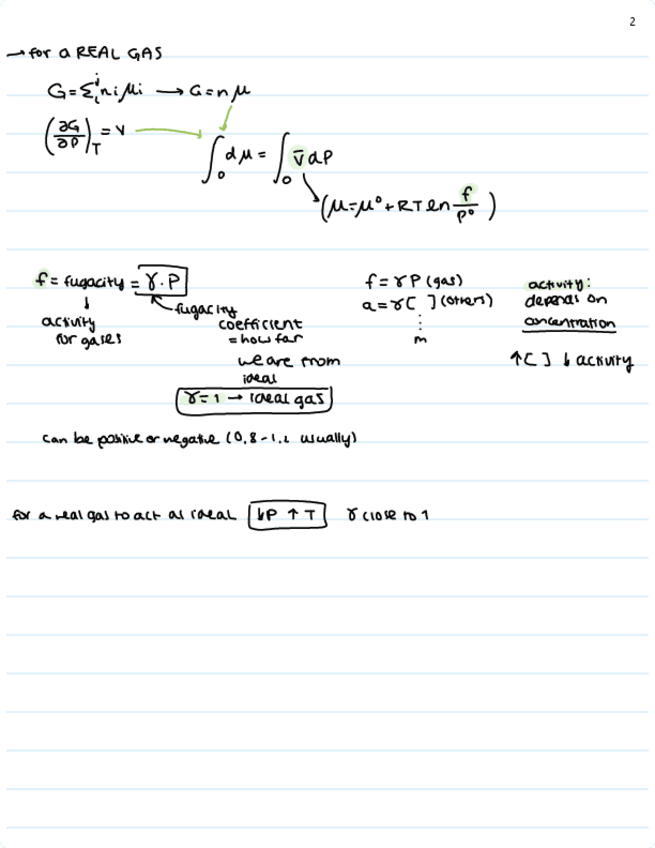 2
→ for a REAL GAS
G = Σᵢʲ nᵢ μᵢ → G = n μ
(∂G/∂P)_T = V
∫₀ dμ = ∫₀ V̄ dP
(μ = μ° + RT ln f/P°)
f = fugacity = γ · P
↓
activity
for gases
fugacity
coefficient
= how far
we are from
ideal
γ = 1 → ideal gas
f = γ P (gas)
a = γ [ ] (others)
⋮
m
activity:
depends on
concentration
↑ [ ] ↓ activity
can be positive or negative (0,8 - 1,2 usually)
for a real gas to act as ideal ↓P ↑T γ close to 1